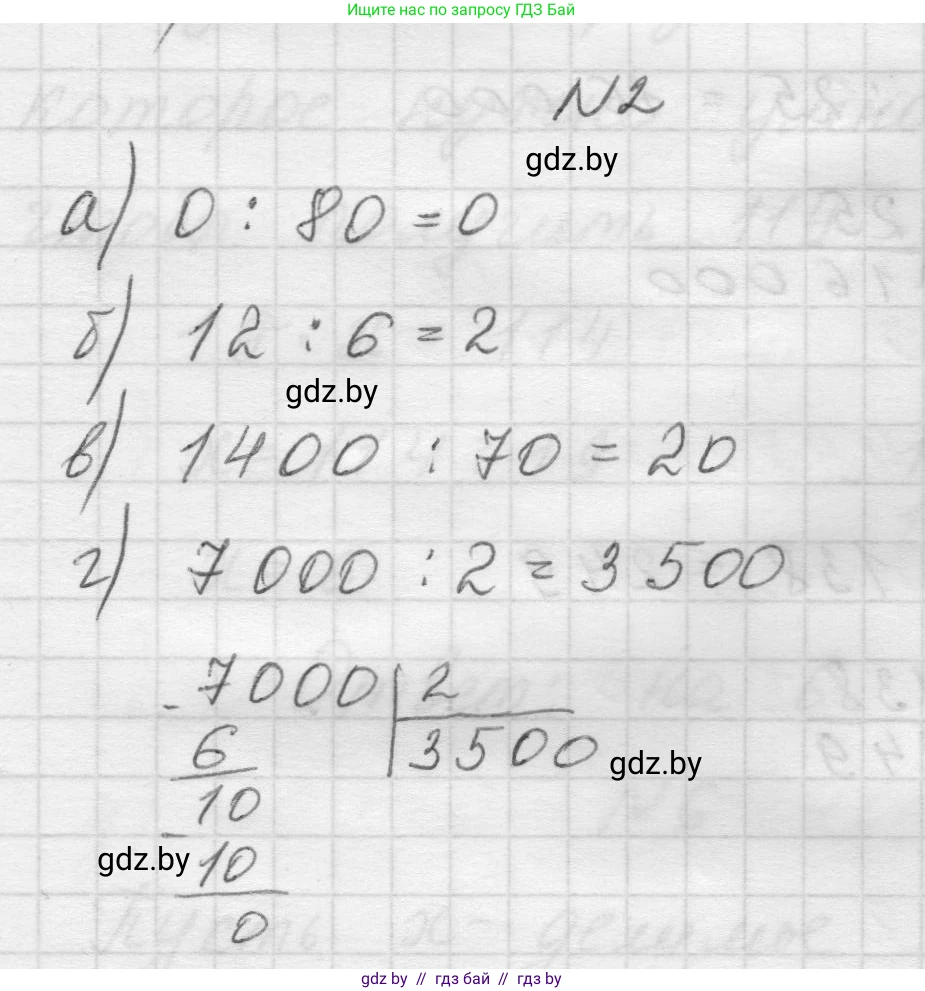 Ищите нас по запросу ГДЗ Бай
N2
gdz.by
а) 0 : 80 = 0
б) 12 : 6 = 2
gdz.by
в) 1400 : 70 = 20
г) 7000 : 2 = 3500
- 7000 | 2
6 3500
gdz.by
10
-
gdz.by
10
0
gdz by // гдз бай // гдз by